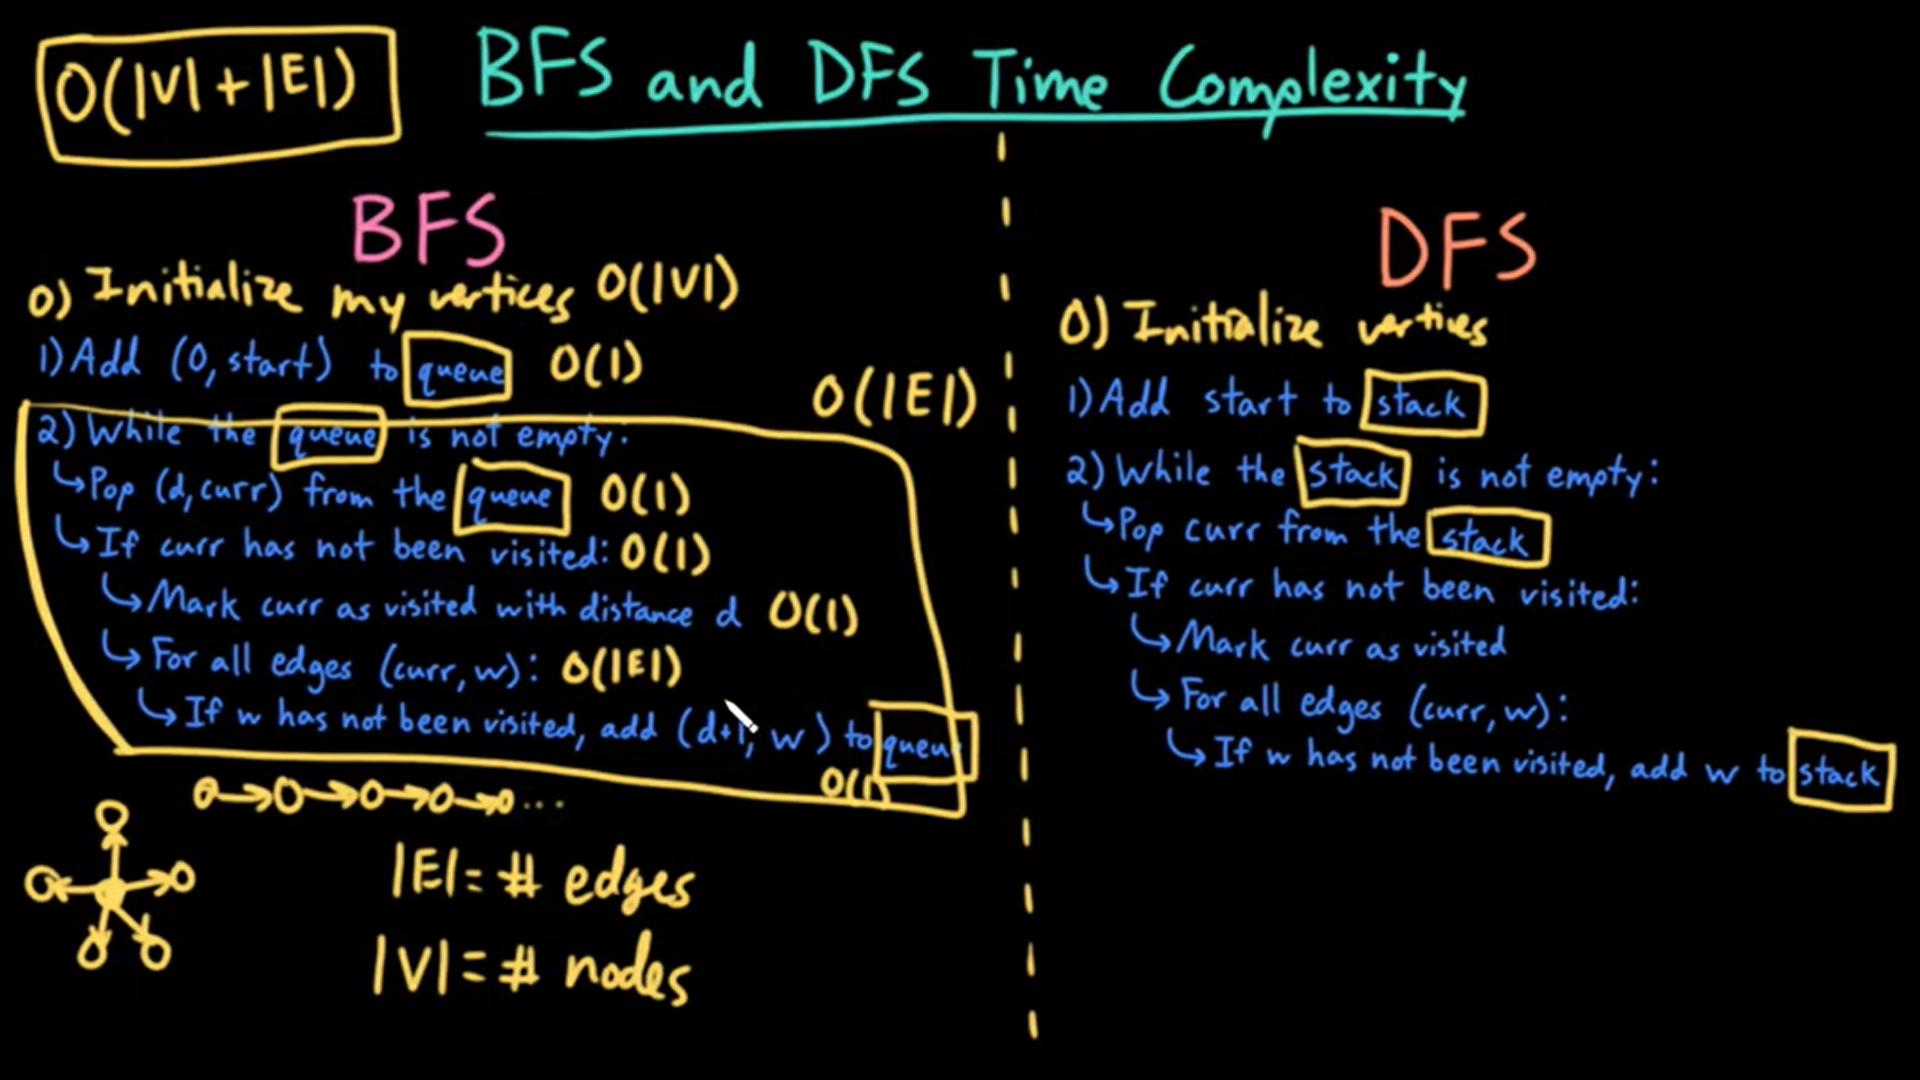 O(|V|+|E|)
BFS and DFS Time Complexity
BFS
0) Initialize my vertices O(|V|)
1) Add (0, start) to queue O(1)
O(|E|)
2) While the queue is not empty:
↳Pop (d, curr) from the queue O(1)
↳If curr has not been visited: O(1)
↳Mark curr as visited with distance d O(1)
↳For all edges (curr, w): O(|E|)
↳If w has not been visited, add (d+1, w) to queue
O(1)
|E| = # edges
|V| = # nodes
DFS
0) Initialize vertives
1) Add start to stack
2) While the stack is not empty:
↳Pop curr from the stack
↳If curr has not been visited:
↳Mark curr as visited
↳For all edges (curr, w):
↳If w has not been visited, add w to stack